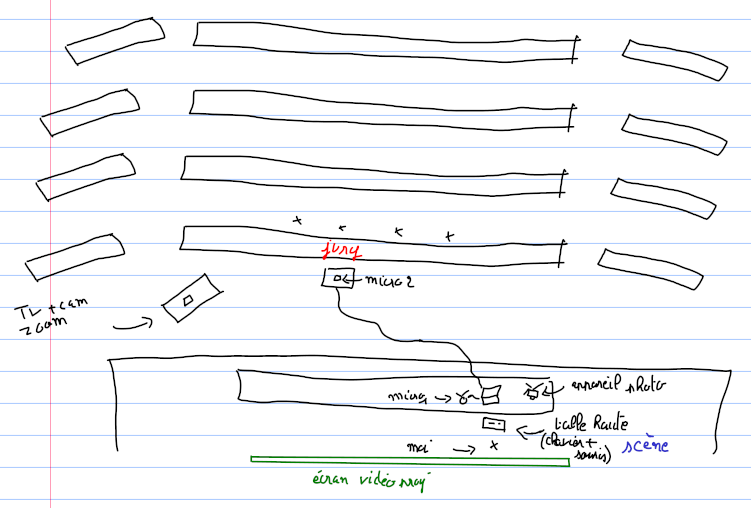 jury
micro 2
TL + cam
zoom
micro1
appareil photo
table haute
(clavier +
souris)
scène
moi
écran vidéo proj